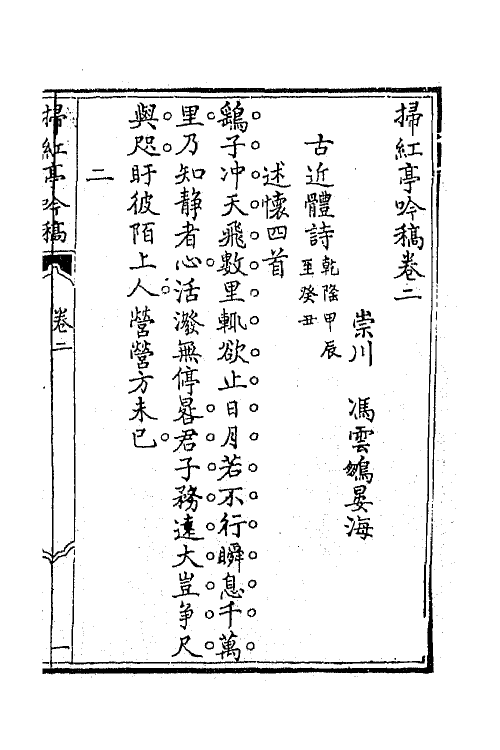 掃紅亭吟稿卷二
崇川 馮雲鵷晏海
古近體詩乾隆甲辰
至癸丑
述懷四首
鷄子冲天飛數里輒欲止日月若不行瞬息千萬
里乃知静者心活潑無停晷君子務遠大豈争尺
與咫盱彼陌上人營營方未已
二
掃紅亭吟稿
卷二
一